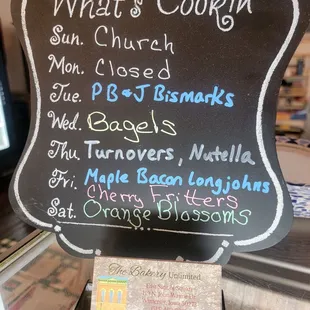 What's Cookin
Sun. Church
Mon. Closed
Tue. PB & J Bismarks
Wed. Bagels
Thu. Turnovers, Nutella
Fri. Maple Bacon Longjohns
Cherry Fritters
Sat. Orange Blossoms
The Bakery Unlimited